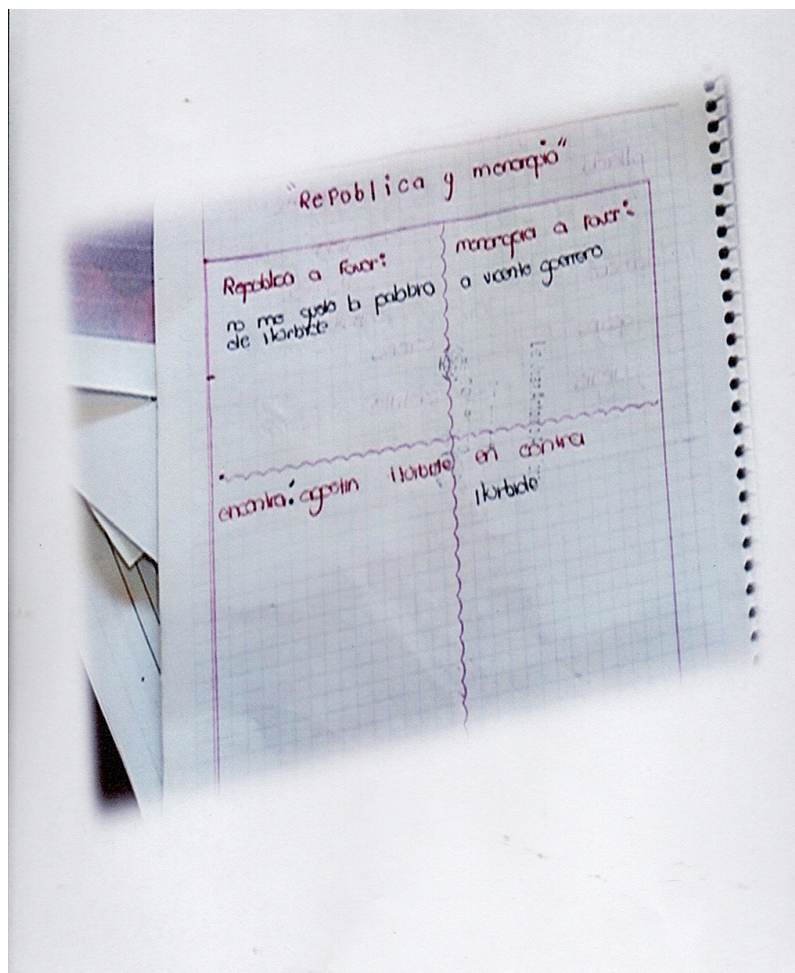 "Republica y menarqia"
Republica a favor:
no me gusto la palabra
de iturbide
menarqia a favor:
a vicente guerrero
encontra: agostin iturbide
en contra
iturbide